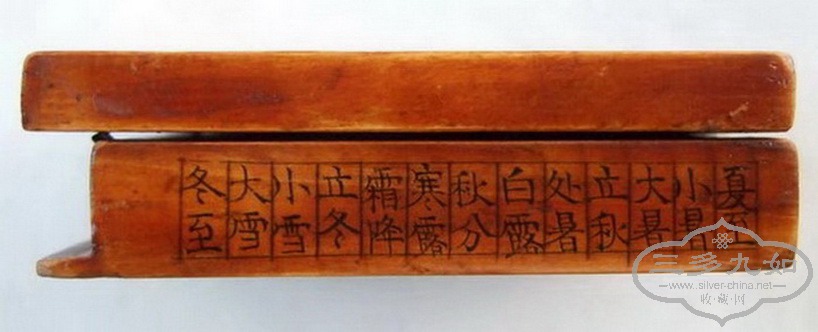 夏至
小暑
大暑
立秋
处暑
白露
秋分
寒露
霜降
立冬
小雪
大雪
冬至
三多九如
www.silver-china.net
收藏网